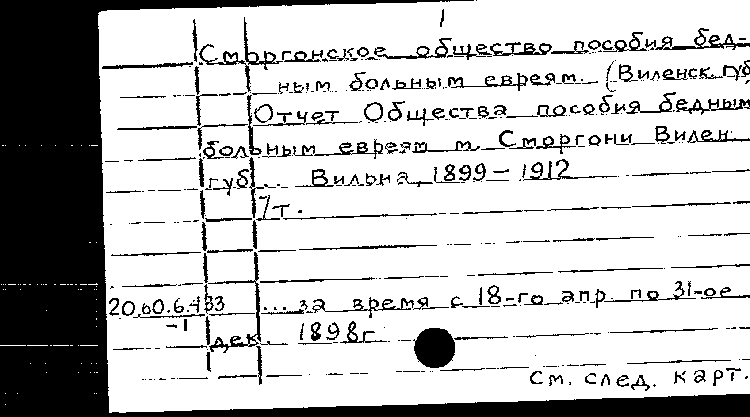 1
Сморгонское общество пособия бед-
ным больным евреям. (Виленск. губ
Отчет Общества пособия бедным
больным евреям м. Сморгони Вилен.
губ... Вильна, 1899-1912
7т.
20.60.6.433 ... за время с 18-го апр. по 31-ое
-1
дек. 1898г
См. след. карт.